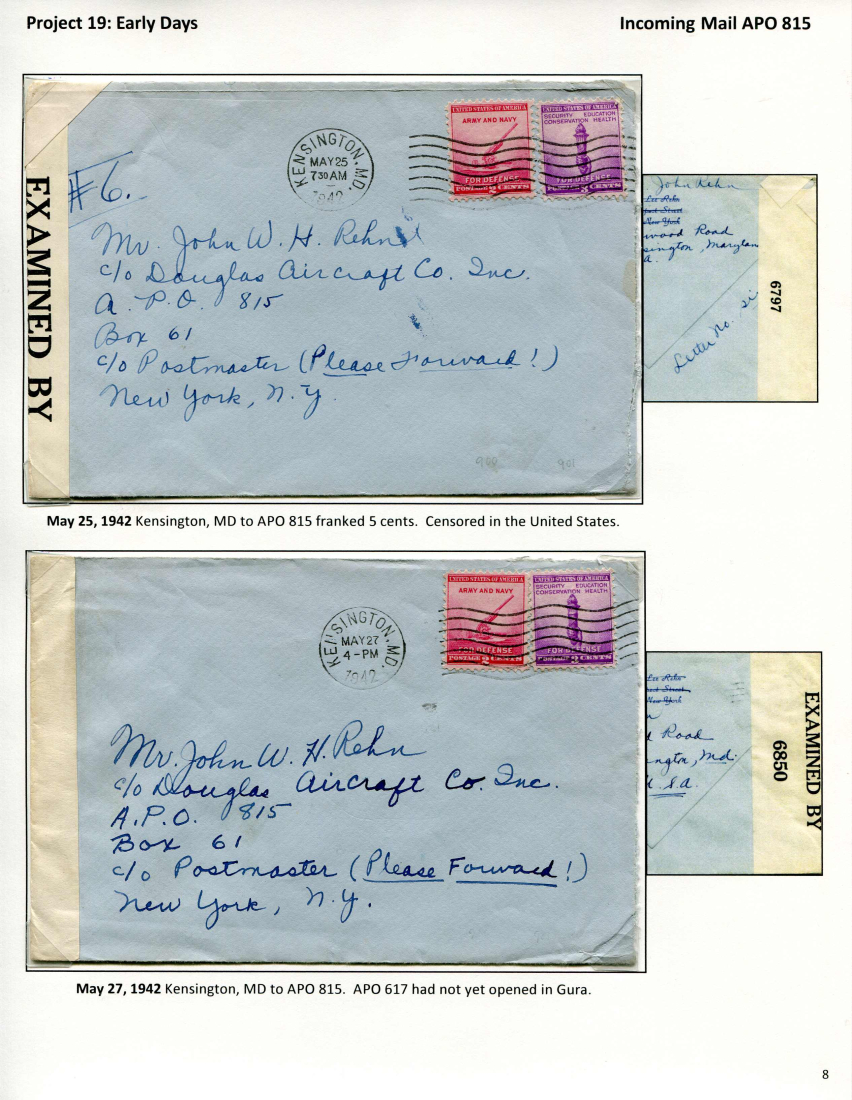 Project 19: Early Days
Incoming Mail APO 815
EXAMINED BY
#6.
KENSINGTON, MD.
MAY 25
7 30 AM
1942
UNITED STATES OF AMERICA
ARMY AND NAVY
FOR DEFENSE
POSTAGE 2 CENTS
UNITED STATES OF AMERICA
SECURITY EDUCATION
CONSERVATION HEALTH
FOR DEFENSE
POSTAGE 3 CENTS
Mr. John W. H. Rehn
c/o Douglas Aircraft Co. Inc.
A. P.O. 815
Box 61
c/o Postmaster (Please Forward!)
New York, N.Y.
901
John Rehn
Lee Rehn
Street
New York
wood Road
sington, Marylan
Letter No.
6797
May 25, 1942 Kensington, MD to APO 815 franked 5 cents. Censored in the United States.
KENSINGTON, MD.
MAY 27
4-PM
1942
UNITED STATES OF AMERICA
ARMY AND NAVY
FOR DEFENSE
POSTAGE 2 CENTS
UNITED STATES OF AMERICA
SECURITY EDUCATION
CONSERVATION HEALTH
FOR DEFENSE
POSTAGE 3 CENTS
Mr. John W. H. Rehn
c/o Douglas Aircraft Co. Inc.
A.P.O. 815
Box 61
c/o Postmaster (Please Forward!)
New York, N.Y.
Lee Rehn
Street
New York
Road
ngton, Md.
U.S.A.
EXAMINED BY
6850
May 27, 1942 Kensington, MD to APO 815. APO 617 had not yet opened in Gura.
8